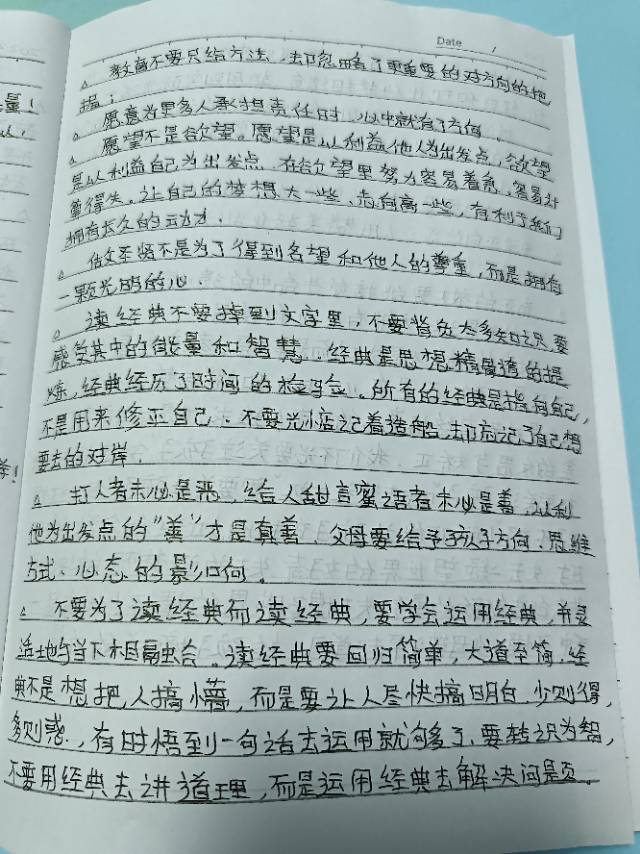 Date /
。教育不要只给方法，却忽略了更重要的对方向的把
握；
。愿意为更多人承担责任时，心中就有了方向。
。愿望不是欲望。愿望是以利益他人为出发点，欲望
是以利益自己为出发点，在欲望里努力容易着急，容易计
算得失。让自己的梦想大一些，志向高一些，有利于我们
拥有长久的动力。
。做圣贤不是为了得到名望和他人的尊重，而是拥有
一颗光明的心。
。读经典不要掉到文字里，不要背负太多知识，要
感受其中的能量和智慧，经典是思想精髓的提
炼，经典经历了时间的检验。所有的经典是指向自己，
不是用来修正自己。不要光惦记着造船，却忘记了自己想
要去的对岸。
。打人者未必是恶，给人甜言蜜语者未必是善，以利
他为出发点的“善”才是真善。父母要给予孩子方向、思维
方式、心态的影响。
。不要为了读经典而读经典，要学会运用经典，并灵
活地与当下相融合。读经典要回归简单，大道至简，经
典不是想把人搞懵，而是要让人尽快搞明白，少则得，
多则惑，有时悟到一句话去运用就够了，要转识为智，
不要用经典去讲道理，而是运用经典去解决问题。
量！